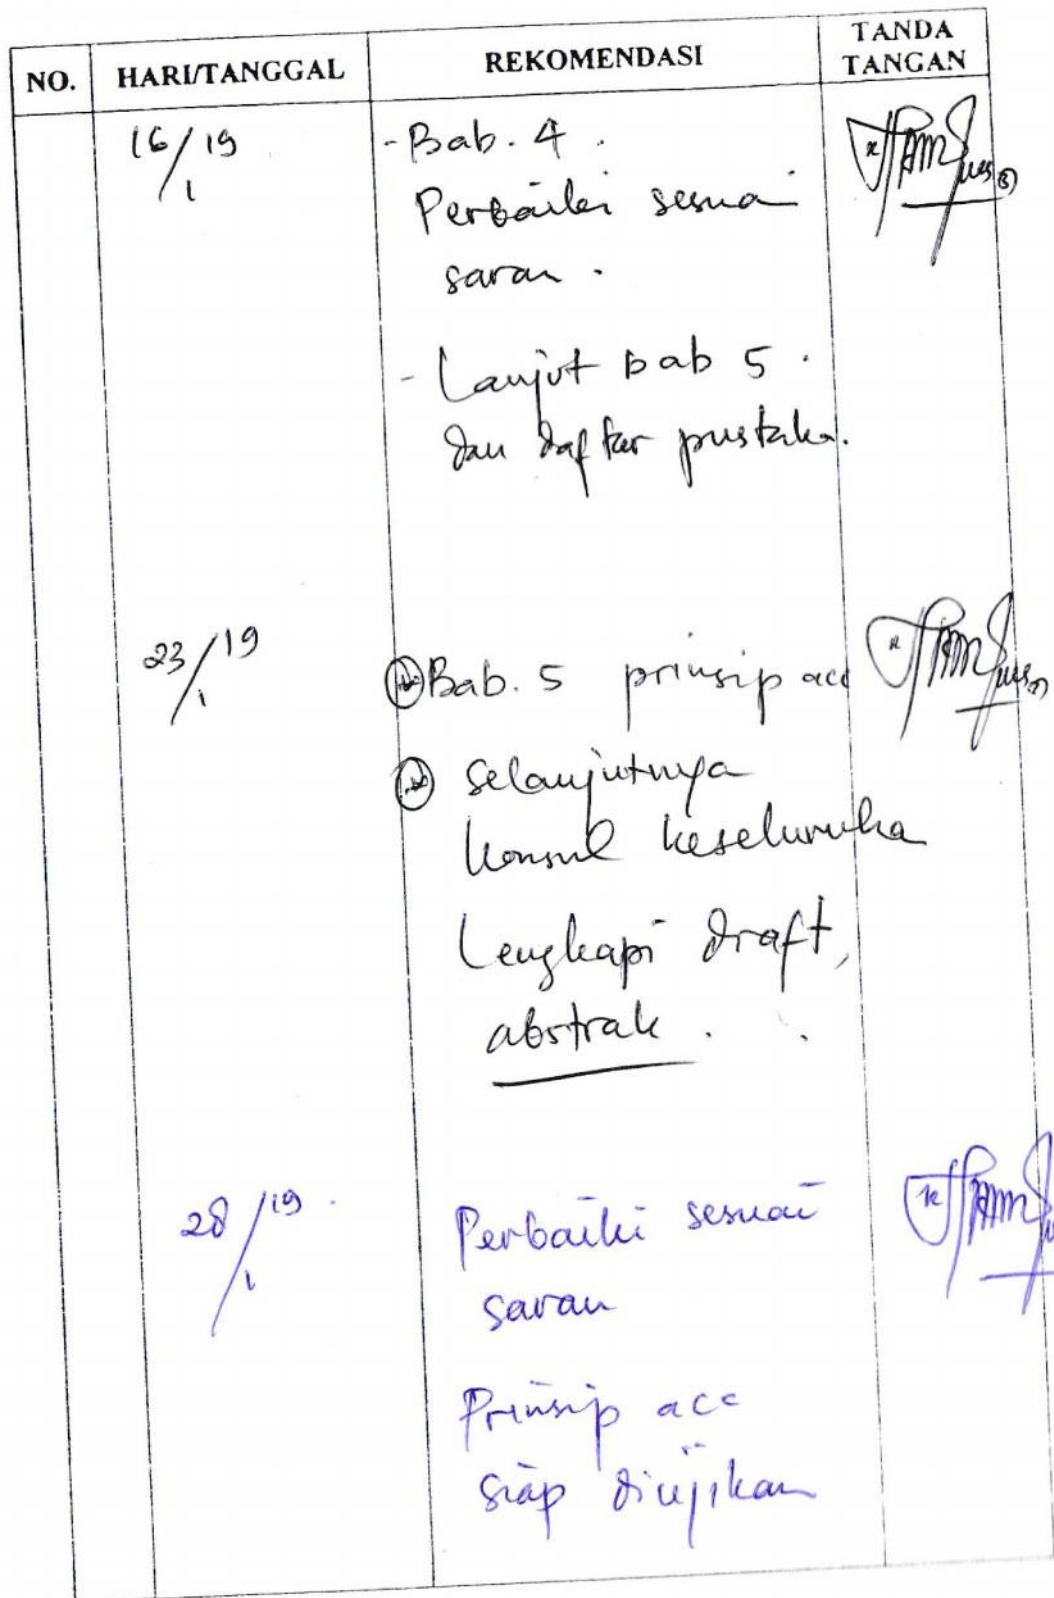 NO. HARI/TANGGAL REKOMENDASI TANDA TANGAN
16/1 19 - Bab. 4.
Perbaiki sesuai
saran.
- Lanjut bab 5.
dan daftar pustaka.
23/1 19 Bab. 5 prinsip acc
Selanjutnya
konsul keseluruha
Lengkapi draft,
abstrak.
28/1 19. Perbaiki sesuai
saran
Prinsip acc
siap diujikan